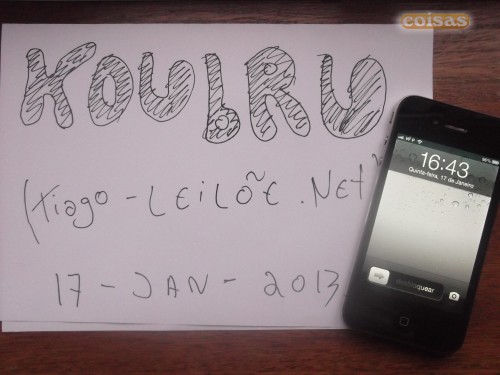 coisas
KOULRU
(Tiago - LEiLÕE.NET
17 - JAN - 2013
VF P
16:43
Quinta-feira, 17 de Janeiro
desbloquear